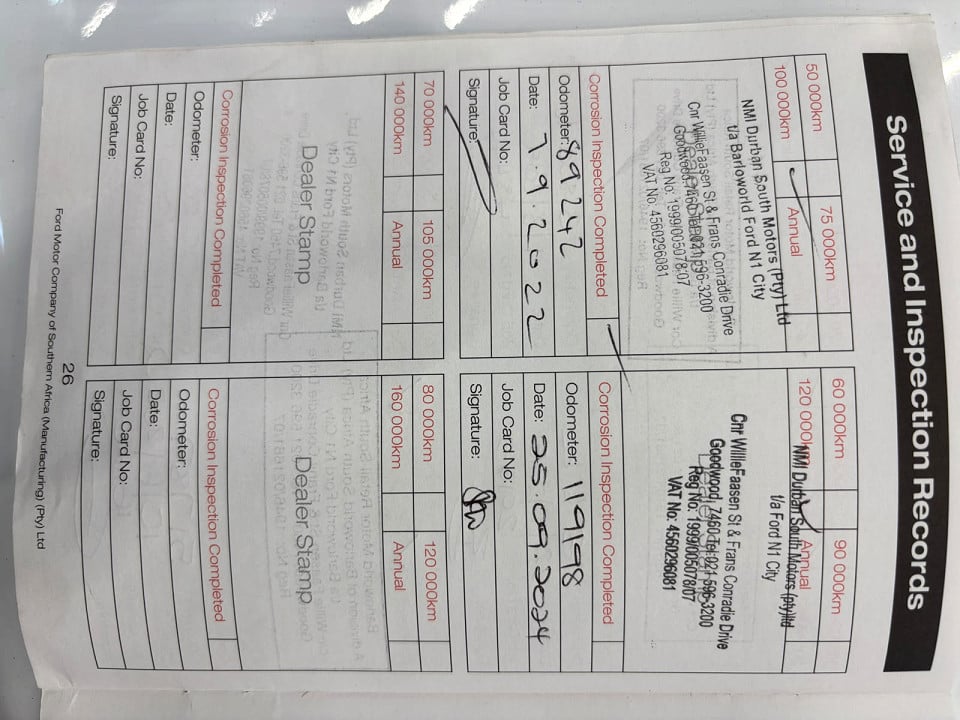 Service and Inspection Records
50 000km
75 000km
100 000km
Annual
NMI Durban South Motors (Pty) Ltd
t/a Barloworld Ford N1 City
Cnr WillieFaasen St & Frans Conradie Drive
Goodwood, 7460 Tel:021 596-3200
Reg No: 1999/005078/07
VAT No: 4560296081
Corrosion Inspection Completed
Odometer: 89242
Date: 7.9.2022
Job Card No:
Signature:
60 000km
90 000km
120 000km
Annual
NMI Durban South Motors (pty)ltd
t/a Ford N1 City
Cnr WillieFaasen St & Frans Conradie Drive
Goodwood, 7460 Tel:021 596-3200
Reg No: 1999/005078/07
VAT No: 4560296081
Corrosion Inspection Completed
Odometer: 119198
Date: 25.09.2024
Job Card No:
Signature:
70 000km
105 000km
140 000km
Annual
Dealer Stamp
Corrosion Inspection Completed
Odometer:
Date:
Job Card No:
Signature:
80 000km
120 000km
160 000km
Annual
Dealer Stamp
Corrosion Inspection Completed
Odometer:
Date:
Job Card No:
Signature:
26
Ford Motor Company of Southern Africa (Manufacturing) (Pty) Ltd